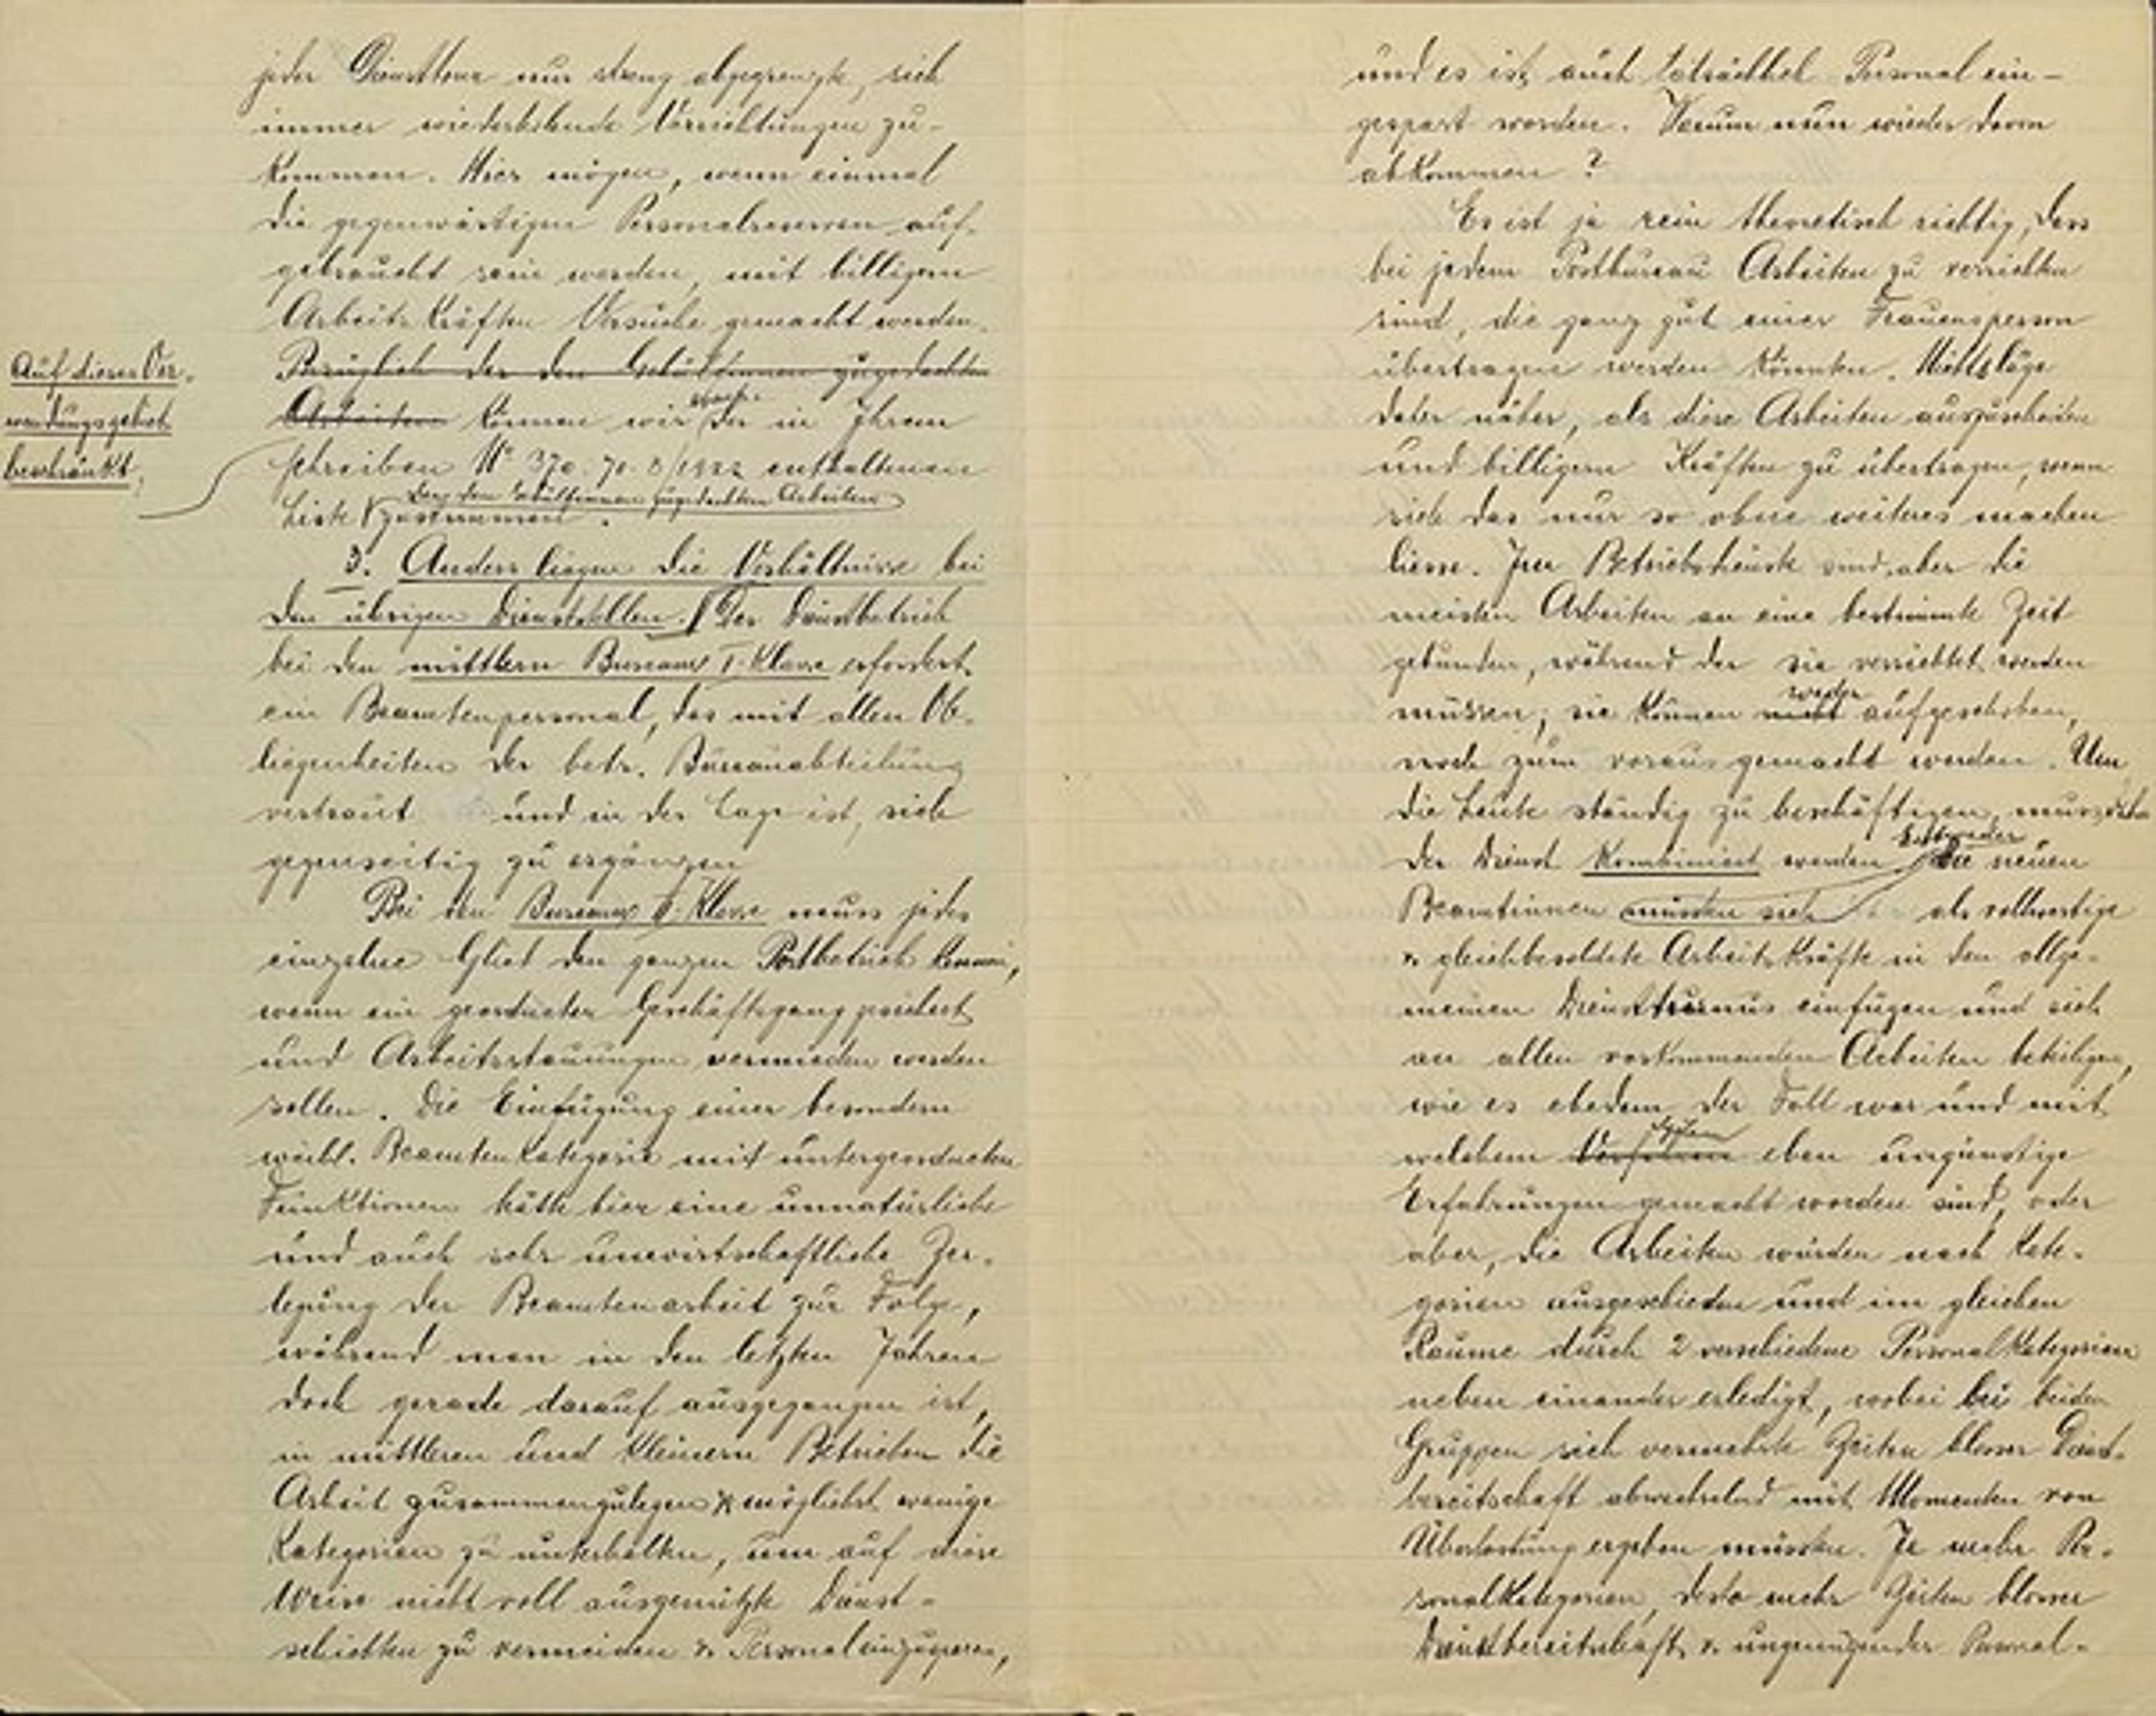 jeder Diensttour nur streng abgegrenzte, sich
immer wiederholende Verrichtungen zu-
kommen. Hier mögen, wenn einmal
die gegenwärtigen Personalreserven auf-
gebraucht sein werden, mit billigern
Arbeitskräften Versuche gemacht werden.
Bezüglich der den Gehülfinnen zugedachten
Arbeiten können wir der in Ihrem
Schreiben Nº 370.70.8/1922 enthaltenen
der den Gehülfinnen zugedachten Arbeiten
Liste zustimmen.
Auf dieses Ver-
wendungsgebiet
beschränkt,
3. Anders liegen die Verhältnisse bei
den übrigen Dienststellen. Der Dienstbetrieb
bei den mittlern Bureaux I. Klasse erfordert
ein Beamtenpersonal, das mit allen Ob-
liegenheiten der betr. Bureauabteilung
vertraut und in der Lage ist, sich
gegenseitig zu ergänzen
Bei den Bureaux II. Klasse muss jedes
einzelne Glied den ganzen Postbetrieb kennen,
wenn ein geordneter Geschäftsgang gesichert
und Arbeitsstauungen vermieden werden
sollen. Die Einfügung einer besondern
weibl. Beamtenkategorie mit untergeordneten
Funktionen hätte hier eine unnatürliche
und auch sehr unwirtschaftliche Zer-
legung der Beamtenarbeit zur Folge,
während man in den letzten Jahren
doch gerade darauf ausgegangen ist,
in mittleren und kleinern Betrieben die
Arbeit zusammenzulegen & möglichst wenige
Kategorien zu unterhalten, um auf diese
Weise nicht voll ausgenützte Dienst-
schichten zu vermeiden & Personal einzusparen,
und es ist auch tatsächlich Personal ein-
gespart worden. Warum nun wieder davon
abkommen?
Es ist ja rein theoretisch richtig, dass
bei jedem Postbureau Arbeiten zu verrichten
sind, die ganz gut einer Frauensperson
übertragen werden könnten. Nichts läge
daher näher, als diese Arbeiten auszuscheiden
und billigern Kräften zu übertragen, wenn
sich das nur so ohne weiteres machen
liesse. Im Betriebsdienste sind aber die
meisten Arbeiten an eine bestimmte Zeit
gebunden, während der sie verrichtet werden
weder
müssen; sie können nicht aufgeschoben,
noch zum voraus gemacht werden. Um
die Leute ständig zu beschäftigen, muss daher
Entweder
der Dienst kombiniert werden die neuen
Beamtinnen müssten sich als vollwertige
& gleichbesoldete Arbeitskräfte in den allge-
meinen Diensttturnus einfügen und sich
an allen vorkommenden Arbeiten beteiligen,
wie es ehedem der Fall war und mit
System
welchem Verfahren eben ungünstige
Erfahrungen gemacht worden sind, oder
aber, die Arbeiten würden nach Kate-
gorien ausgeschieden und im gleichen
Raume durch 2 verschiedene Personalkategorien
neben einander erledigt, wobei bei beiden
Gruppen sich vermehrte Zeiten blosser Dienst-
bereitschaft abwechselnd mit Momenten von
Überlastung ergeben müssten. Je mehr Per-
sonalkategorien, desto mehr Zeiten blosser
Dienstbereitschaft & ungenügender Personal-